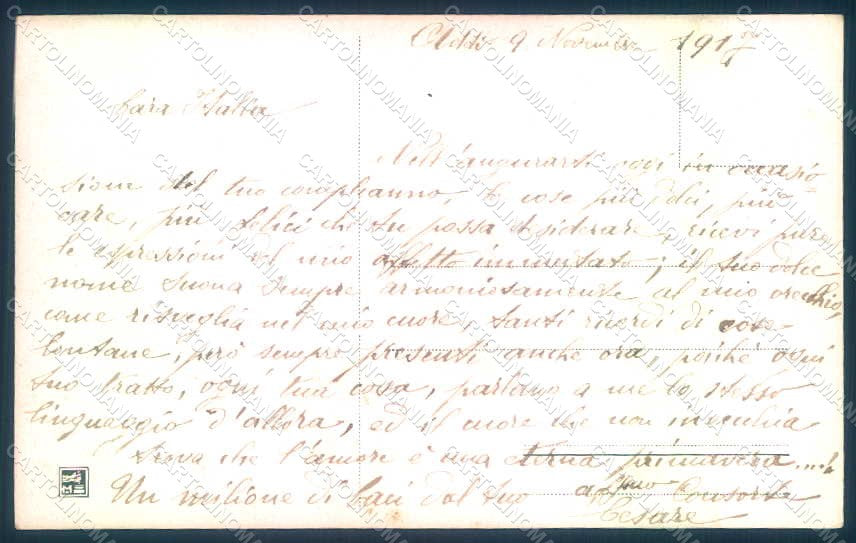 Addì 9 Novembre 1917
Cara Italia
Nell'augurarti oggi in occasio-
sione del tuo compleanno, le cose più dolci, più
care, più felici che tu possa desiderare, ricevi pure
le espressioni del mio affetto immutato; il tuo dolce
nome suona sempre armoniosamente al mio orecchio,
come risveglia nel mio cuore, tanti ricordi di cose
lontane, però sempre presenti anche ora, poichè ogni
tuo tratto, ogni tua cosa, parlano a me lo stesso
linguaggio d'allora, ed il cuore che non invecchia
trova che l'amore è una eterna primavera....!
Un milione di baci dal tuo aff.mo Consorte
Cesare
CARTOLINOMANIA